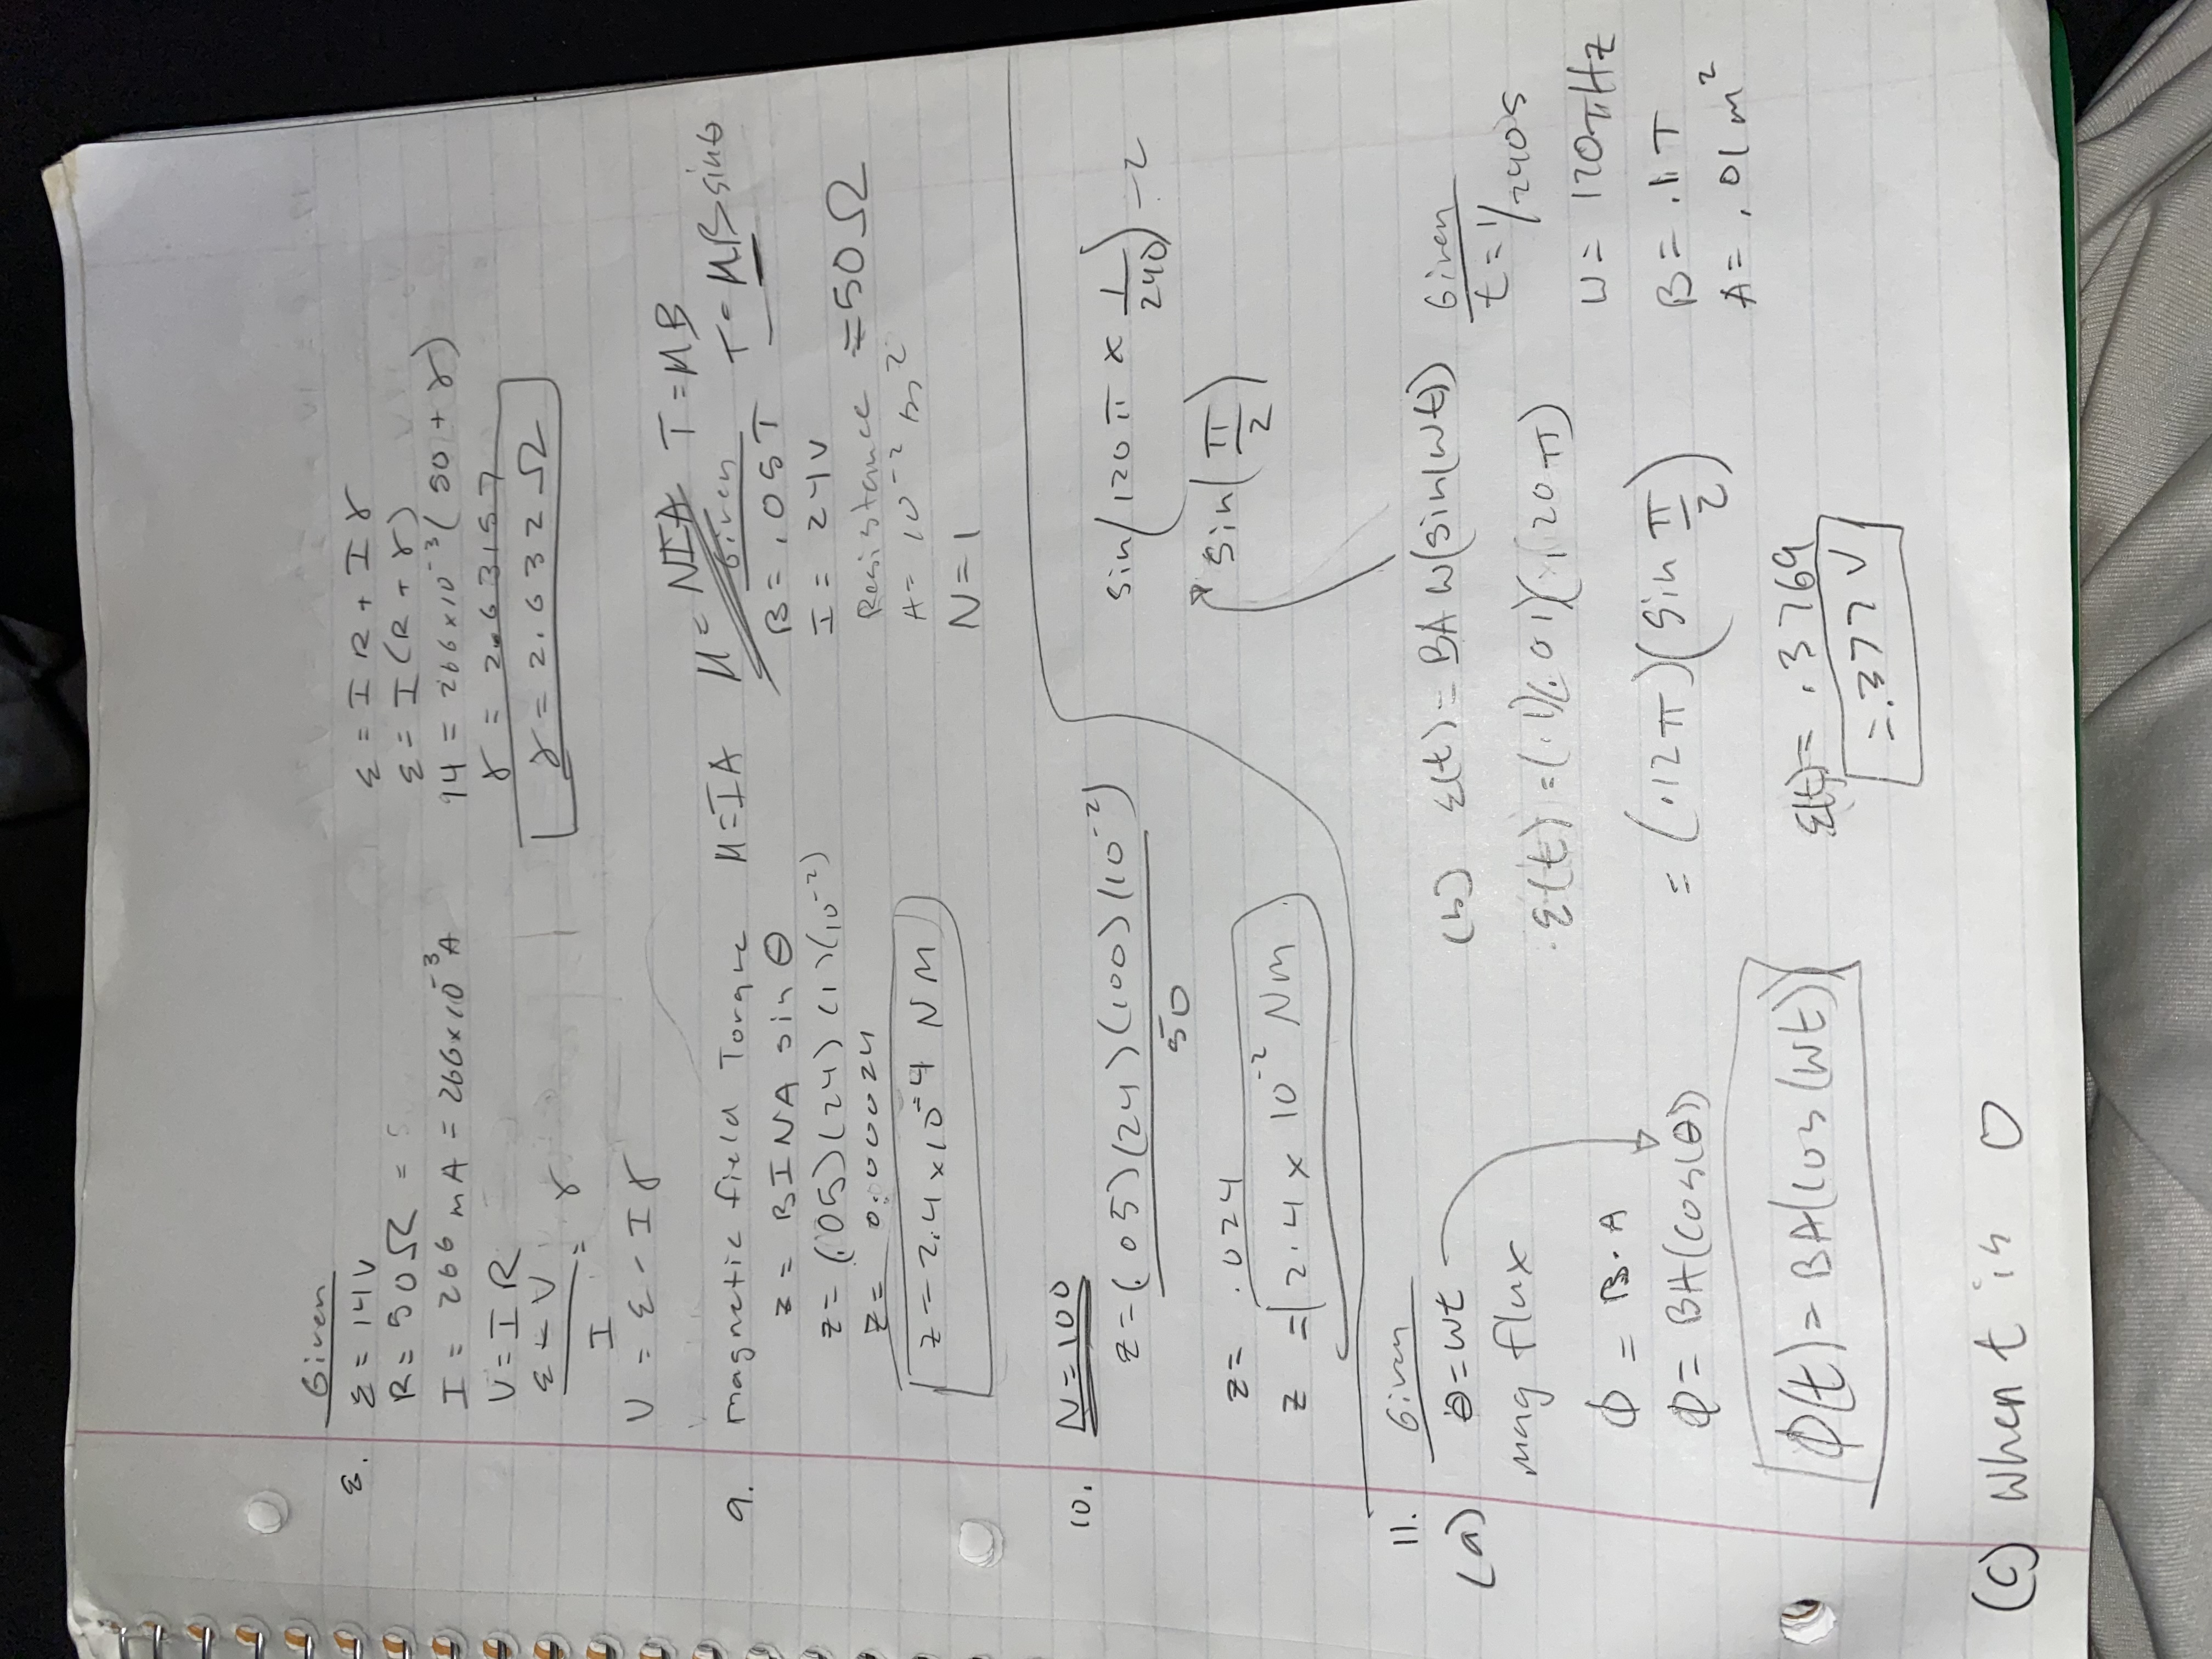 Given
8.
ε = 14V
R = 50Ω =
I = 266 mA = 266x10⁻³A
V = IR
ε - V
I
= r
V = ε - Ir
ε = IR + Ir
ε = I(R + r)
14 = 266x10⁻³(50 + r)
r = 2.63157
r = 2.632Ω
9. magnetic field Torque μ=IA
μ = NIA T=μB
T=μBsinθ
τ = BINA sin θ
τ = (.05)(24)(1)(10⁻²)
τ = 0.00024
τ = 2.4x10⁻⁴ NM
Given
B = .05T
I = 24V
Resistance = 50Ω
A = 10⁻² m²
N = 1
10. N = 100
τ = (.05)(24)(100)(10⁻²)
50
τ = .024
τ = 2.4 x 10⁻² Nm
sin(120π x 1/240) - 2
sin(π/2)
11. Given
(a) θ = wt
mag flux
ϕ = B·A
ϕ = BA(cos(θ))
ϕ(t) = BA(cos(wt))
(b) ε(t) = BAw(sin(wt))
ε(t) = (.1)(.01)(120π)
= (.12π)(sin π/2)
ε(t) = .3769
= .377 V
Given
t = 1/240s
w = 120πHz
B = .1T
A = .01m²
(c) when t is 0